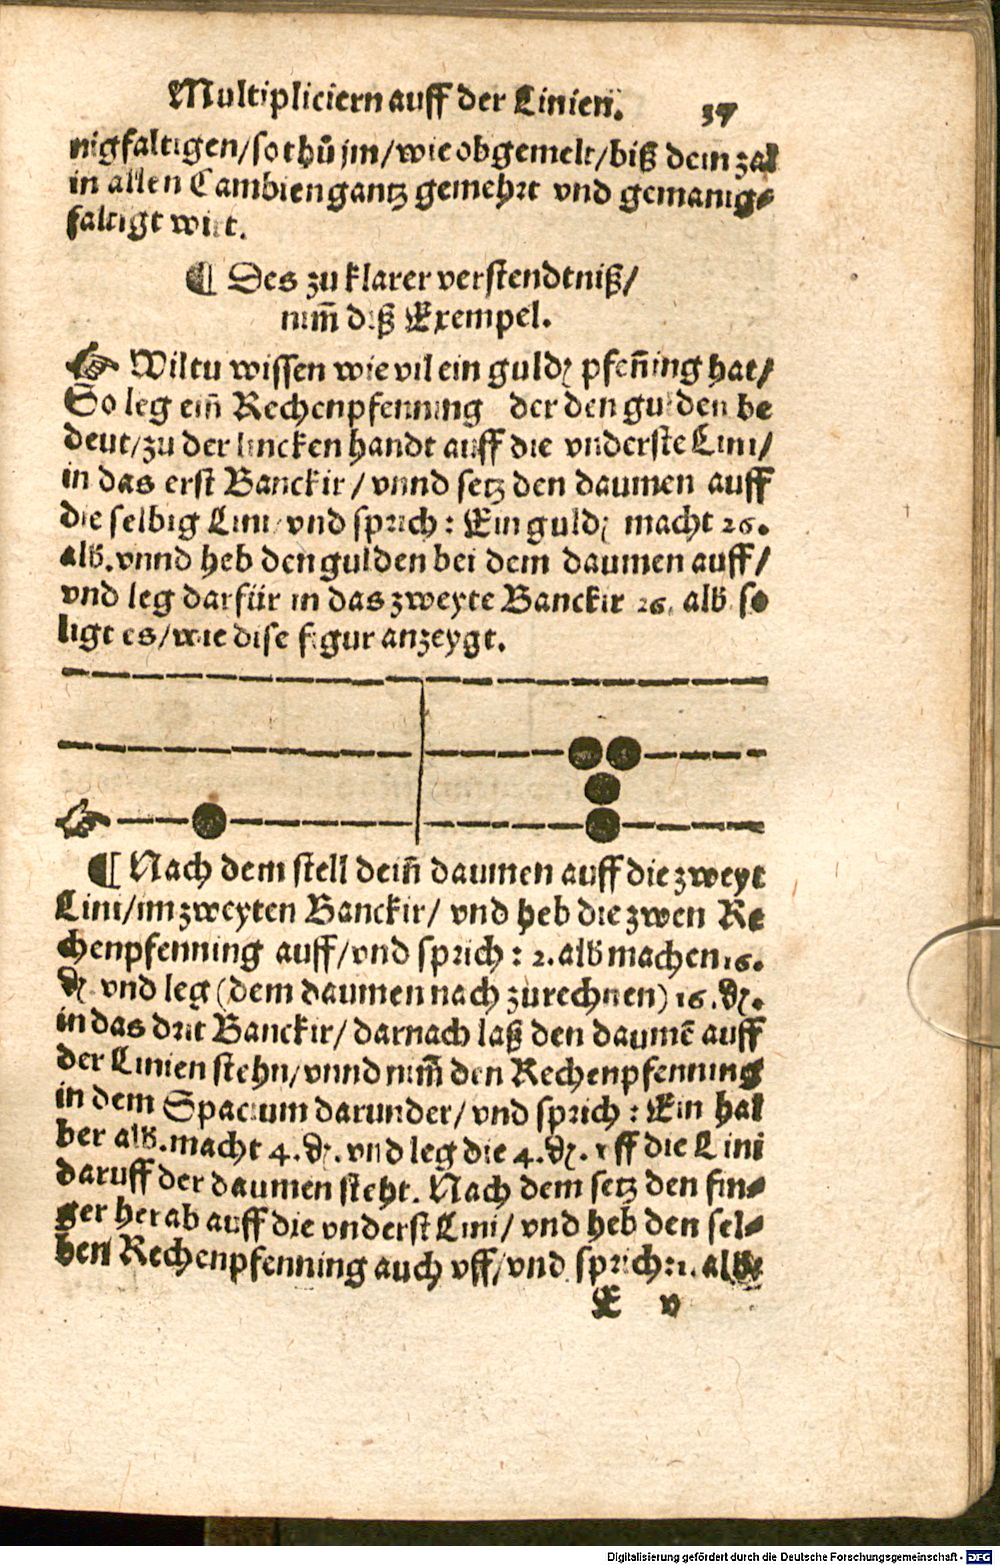 Multipliciern auff der Linien. 37
nigfaltigen/so thů jm/wie obgemelt/biß dein zal
in allen Cambien gantz gemehrt vnd gemanig⸗
faltigt wirt.
¶ Des zu klarer verstendtniß/
nim̃ diß Exempel.
☞ Wiltu wissen wie vil ein guldẽ pfen̄ing hat/
So leg ein̄ Rechenpfenning der den gulden be
deut/zu der lincken handt auff die vnderste Lini/
in das erst Banckir/vnnd setz den daumen auff
die selbig Lini vnd sprich: Ein guldẽ macht 26.
alb. vnnd heb den gulden bei dem daumen auff/
vnd leg darfür in das zweyte Banckir 26. alb so
ligt es/wie dise figur anzeygt.
¶ Nach dem stell dein̄ daumen auff die zweyt
Lini/im zweyten Banckir/vnd heb die zwen Re
chenpfenning auff/vnd sprich: 2. alb machen 16.
₰ vnd leg (dem daumen nach zurechnen) 16. ₰.
in das drit Banckir/darnach laß den daumẽ auff
der Linien stehn/vnnd nim̃ den Rechenpfenning
in dem Spacium darunder/vnd sprich: Ein hal
ber alb. macht 4. ₰. vnd leg die 4. ₰. vff die Lini
daruff der daumen steht. Nach dem setz den fin⸗
ger herab auff die vnderst Lini/vnd heb den sel⸗
ben Rechenpfenning auch vff/vnd sprich: 1. alb.
E v
Digitalisierung gefördert durch die Deutsche Forschungsgemeinschaft - DFG